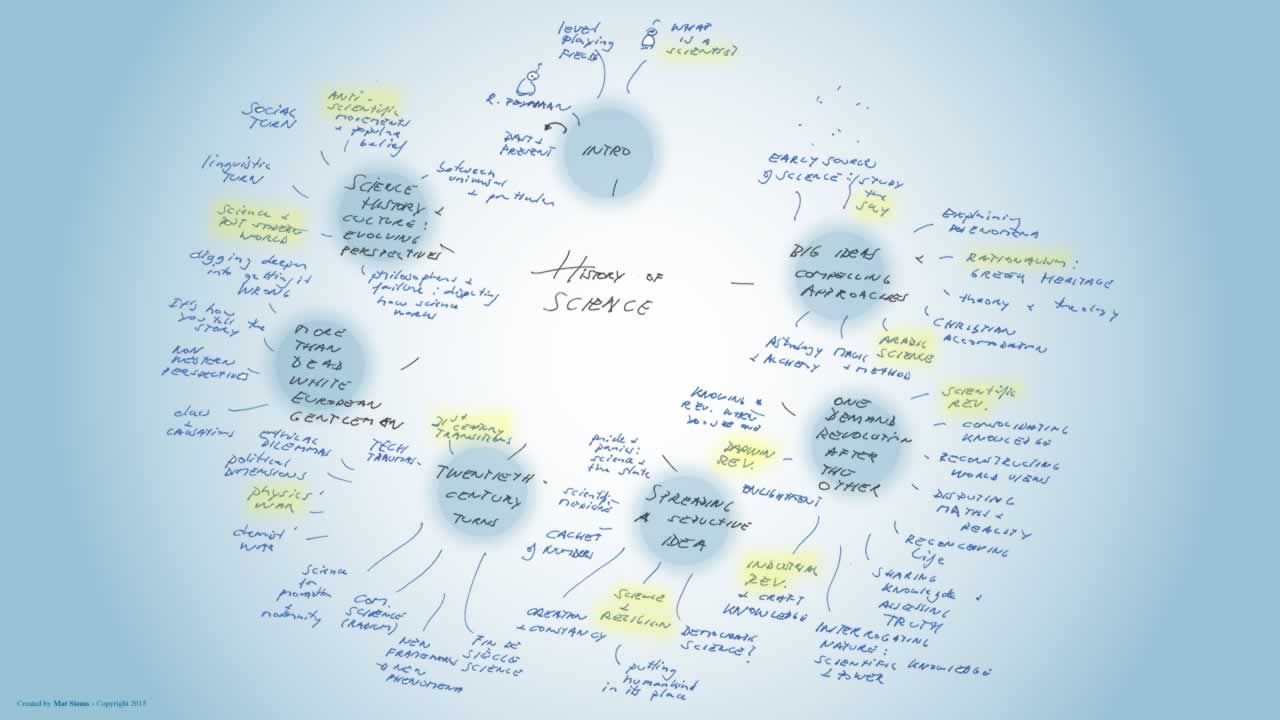 HISTORY OF
SCIENCE
INTRO
level
playing
FIELD
WHAT
IS A
SCIENTIST?
R. FEYNMAN
PAST &
PRESENT
BIG IDEAS
COMPELLING
APPROACHES
EARLY SOURCE
of SCIENCE: STUDY
the
SKY
Explaining
PHENOMENA
RATIONALISM:
GREEK HERITAGE
theory & theology
CHRISTIAN
ACCOMMODATION
ARABIC
SCIENCE
MAGIC
& METHOD
Astrology
& ALCHEMY
ONE
DEMAND
REVOLUTION
AFTER
THE
OTHER
SCIENTIFIC
REV.
CONSOLIDATING
KNOWLEDGE
RECONSTRUCTING
WORLD VIEWS
DISPUTING
MATHS &
REALITY
RECONCEIVING
Life
SHARING
KNOWLEDGE &
ACCESSING
TRUTH
INTERROGATING
NATURE:
SCIENTIFIC KNOWLEDGE
& POWER
INDUSTRIAL
REV.
& CRAFT
KNOWLEDGE
ENLIGHTMENT
DARWIN
REV.
KNOWING A
REV. WHEN
YOU SEE ONE
SPREADING
A SEDUCTIVE
IDEA
pride &
panics:
science &
the state
scientific
MEDICINE
CACHET
of NUMBERS
CREATION
& CONSTANCY
SCIENCE
&
RELIGION
putting
humankind
in its place
DEMOCRATIC
SCIENCE?
TWENTIETH
CENTURY
TURNS
21st CENTURY
TRANSITIONS
TECH
TRAUMAS
ETHICAL
DILEMMAS
political
DIMENSIONS
physics
WAR
chemist
WAR
Science
for
promotion
&
modernity
COM.
SCIENCE
(RADIUM)
NEW
FRAMEWORKS
→ NEW
PHENOMENA
FIN DE
SIÈCLE
SCIENCE
MORE
THAN
DEAD
WHITE
EUROPEAN
GENTLEMEN
digging deeper
into getting it
WRONG
IT'S how
you tell the
STORY
NON
WESTERN
PERSPECTIVES
class
&
CAUSATIONS
SCIENCE
HISTORY &
CULTURE:
EVOLVING
PERSPECTIVES
SOCIAL
TURN
ANTI-
SCIENTIFIC
MOVEMENTS
& popular
belief
linguistic
TURN
Science &
POST MODERN
WORLD
between
universal
& particular
philosophers &
failure: disputing
how science
works
Created by Mat Simms - Copyright 2015